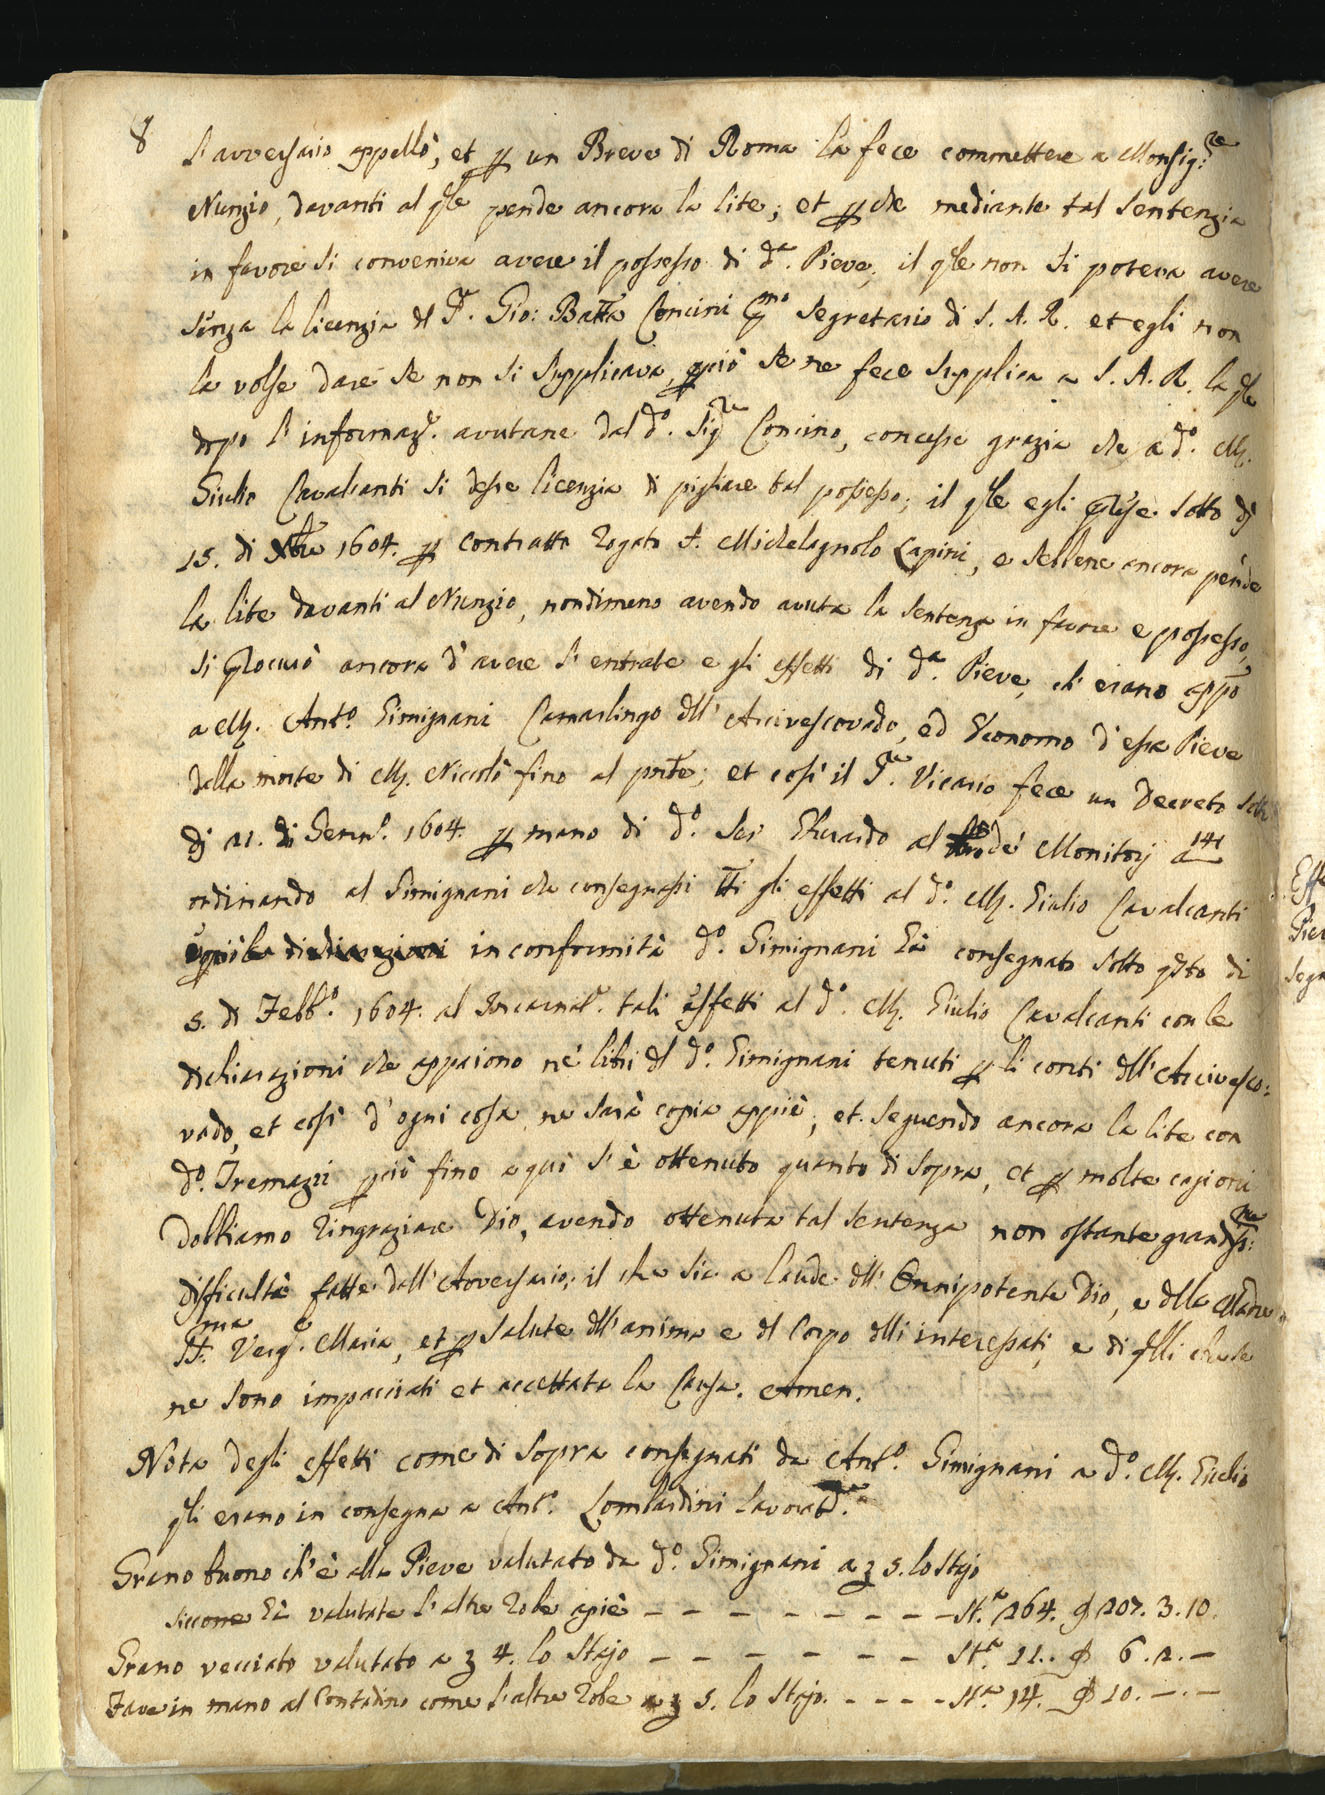 8
l'avversario appellò, et p un Breve di Roma la fece commettere a Monsig.re
Nunzio, davanti al qle pende ancora la lite; et p che mediante tal sentenzia
in favore si conveniva avere il possesso di d.a Pieve, il qle non si poteva avere
senza la licenzia dl S.r Gio: Batta Concini pmo Segretario di S. A. R. et egli non
la volse dare se non si supplicava, pciò se ne fece supplica a S. A. R. la qle
dopo l'informaz.e avutane dal d.o Sig.re Concino, concesse grazia che a d.o M.
Giulio Cavalcanti si desse licenzia di pigliare tal possesso; il qle egli prese sotto dj
15. di Xbre 1604. p contratto rogato S. Michelagnolo Lapini, e sebbene ancora pende
la lite davanti al Nunzio, nondimeno avendo avuta la sentenza in favore e possesso,
si procurò ancora d'avere l'entrate e gli effetti di d.a Pieve, ch'erano appo
a M. Ant.o Gimignani Camarlingo dll'Arcivescovado, ed Economo d'essa Pieve
dalla morte di M. Niccolò fino al pnte; et così il S.r Vicario fece un Decreto sotto
dj 21. di Genn.o 1604. p mano di d.o Ser Eduardo al de' Monitorj a 141
ordinando al Gimignani che consegnassi tti gli effetti al d.o M. Giulio Cavalcanti
in conformità d.o Gimignani hà consegnato sotto qsto di
5. di Febb.o 1604. al Incarnat.e tali effetti al d.o M. Giulio Cavalcanti con le
dichiarazioni che appaiono ne' libri dl d.o Gimignani tenuti p li conti dll'Arcivesco:
vado, et così d'ogni cosa ne sarà copia appiè, et seguendo ancora la lite con
d.o Tremazzi pciò fino a quì s'è ottenuto quanto di sopra, et p molte cagioni
dobbiamo ringraziare Dio, avendo ottenuta tal sentenza non ostante grandiss:me
difficultà fatte dall'Avversario; il che sia a laude dll'Onnipotente Dio, e dlla Madre
SS.ma Verg.e Maria, et p salute dll'anima e dl Corpo dlli interessati, e di qlli che se
ne sono impacciati et accettata la Causa. Amen.
Nota degli effetti come di sopra consegnati da Ant.o Gimignani a d.o M. Giulio
qli erano in consegna a Ant.o Lombardini lavorat.re
Grano buono ch'è alla Pieve valutato da d.o Gimignani a ʒ 5. lo Stajo
siccome hà valutate l'altre robe apiè – – – – – – – – St.a 264. ₰ 207. 3. 10.
Grano vecciato valutato a ʒ 4. lo Stajo – – – – – – – St.a 11.. ₰ 6. 2. –
Fave in mano al Contadino come l'altre robe a ʒ 5. lo Stajo. – – – – St.a 14. ₰ 10. –. –